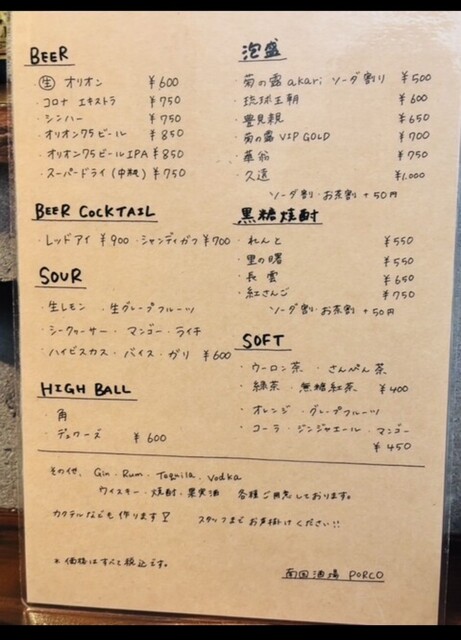 BEER
㊤ オリオン ¥600
・コロナ エキストラ ¥750
・シンハー ¥750
・オリオン75ビール ¥850
・オリオン75ビールIPA ¥850
・スーパードライ (中瓶) ¥750
BEER COCKTAIL
・レッドアイ ¥900 ・シャンディガフ ¥700
SOUR
・生レモン ・生グレープフルーツ
・シークヮーサー ・マンゴー ・ライチ
・ハイビスカス ・バイス ・ガリ ¥600
HIGH BALL
・角
・デュワーズ ¥600
泡盛
・菊の露 akari ソーダ割り ¥500
・琉球王朝 ¥600
・豊見親 ¥650
・菊の露 VIP GOLD ¥700
・華翁 ¥750
・久遠 ¥1,000
ソーダ割・お茶割 +50円
黒糖焼酎
・れんと ¥550
・里の曙 ¥550
・長雲 ¥650
・紅さんご ¥750
ソーダ割・お茶割 +50円
SOFT
・ウーロン茶 ・さんぴん茶
・緑茶 ・無糖紅茶 ¥400
・オレンジ ・グレープフルーツ
・コーラ ・ジンジャエール ・マンゴー
¥450
その他、Gin・Rum・Tequila・Vodka
ウイスキー・焼酎・果実酒 各種ご用意しております。
カクテルなども作ります スタッフまでお声掛けください!!
※価格はすべて税込です。
南国酒場 PORCO